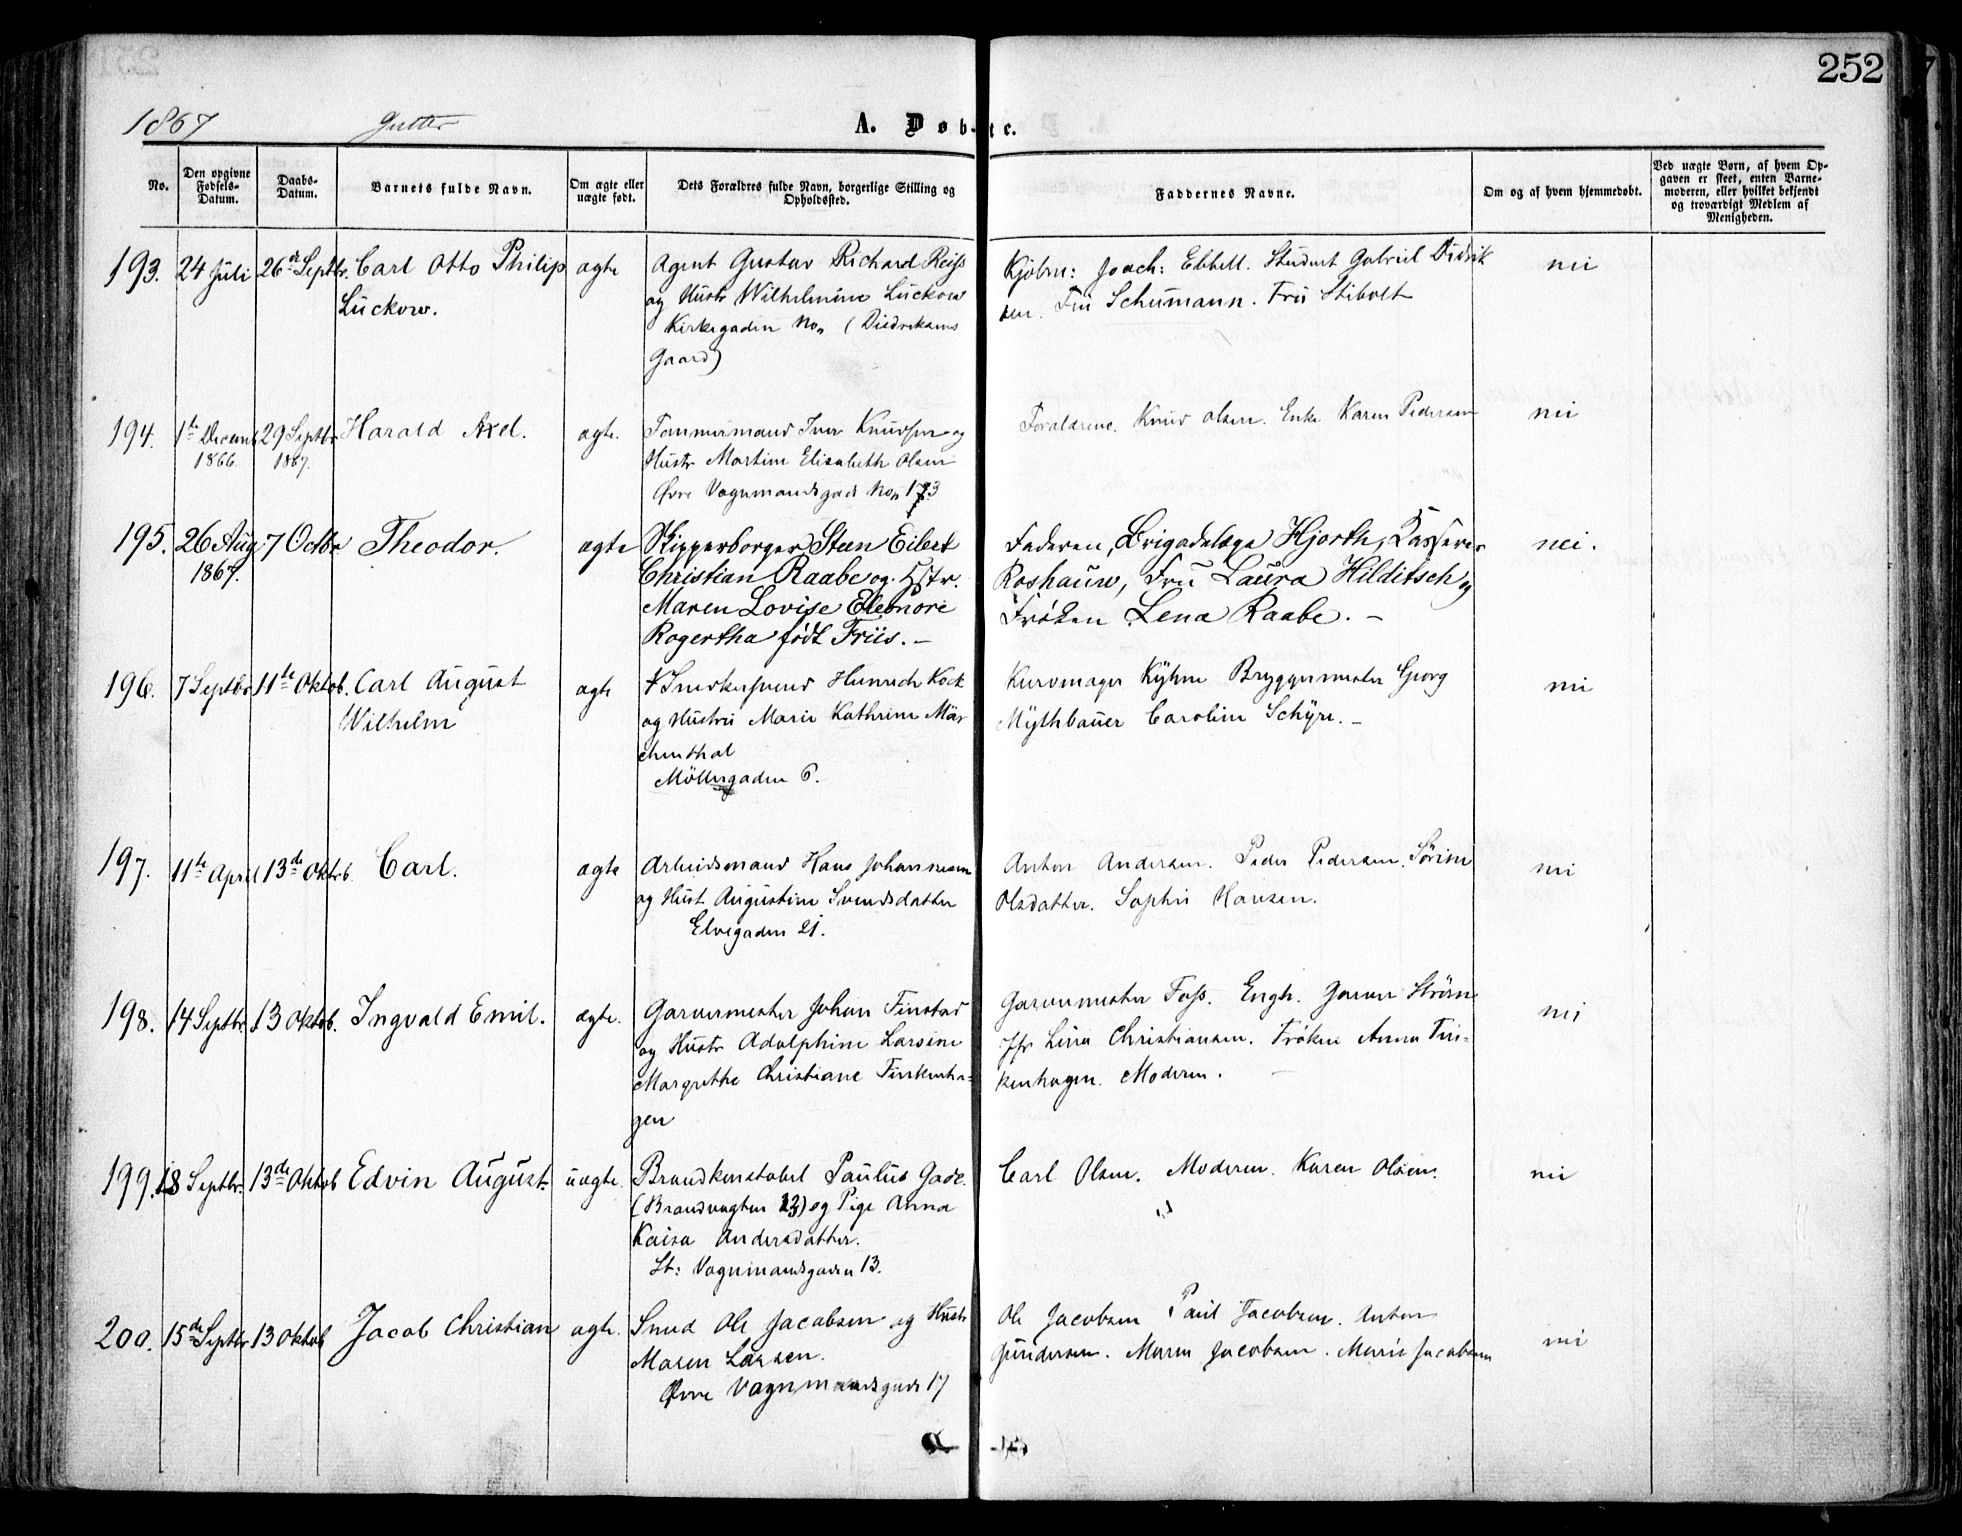 252
1867 Gutter A. Døb-te.
No.
Den opgivne Fødsels-Datum.
Daabs-Datum.
Barnets fulde Navn.
Om ægte eller uægte født.
Dets Forældres fulde Navn, borgerlige Stilling og Opholdssted.
Faddernes Navne.
Om og af hvem hjemmedøbt.
Ved uægte Børn, af hvem Op-
gaven er skeet, enten Barne-
moderen, eller hvilket bekjendt
og troværdigt Medlem af
Menigheden.
193. 24 Juli 26de Septbr. Carl Otto Philip
Lückow.
ægte
Agent Gustav Richard Reiss
og Hustr Wilhelmine Lückow
Kirkegaden No (Diedriksens
Gaard)
Kjøbm: Joach: Ebbell. Student Gabriel Didrik
sen. Fru Schumann. Fru Stibolt
nei
194. 1te Decemb 29 Septbr Harald Axel.
1866. 1867.
ægte.
Tømmermand Iver Knudsen og
Hustr Martine Elisabeth Olsen
Øvre Vognmandsgade No 173
Forældrene. Knud Olsen. Enke Karen Pedersen
nei
195. 26 Aug 7 Octbr Theodor.
1867.
ægte
Skipperborger Steen Eilert
Christian Raabe og Hstr.
Maren Lovise Eleonore
Rogertha født Friis. –
Faderen, Brigadelæge Hjorth, Kasserer
Roshauw, Fru Laura Hilditsch og
Frøken Lena Raabe. –
nei.
196. 7 Septbr 11te Oktob. Carl August
Wilhelm
ægte
Snedkersvend Heinrich Kock
og Hustru Marie Kathrine Mär
chenthal
Møllergaden 6.
Kurvmager Kühne Bryggermester Georg
Mythbauer Caroline Schyrr. –
nei
197. 11te April 13de Oktob. Carl.
ægte
Arbeidsmand Hans Johannesen
og Hust Augustine Svendsdatter
Elvegaden 21.
Anton Andersen. Peder Pedersen. Sørine
Olsdatter. Sophie Hansen.
nei
198. 14 Septbr. 13 Oktob. Ingvald Emil.
ægte.
Garvermester Johan Finstad
og Hustr Adolphine Larsine
Margrethe Christiane Finkenha-
gen
Garvermester Foss. Engh. Garver Strøm
Jfr Lina Christiansen. Frøken Anna Fin-
kenhagen. Moderen.
nei
199. 18 Septbr. 13de Oktob Edvin August.
uægte.
Brandkonstabel Paulus Gade.
(Brandvagten 13) og Pige Anna
Kaisa Andersdatter.
St: Vognmandsgaden 13.
Carl Olsen. Moderen. Karen Olsen.
nei
200. 15de Septbr 13 Oktob Jacob Christian
ægte.
Smed Ole Jacobsen og Hustr
Maren Larsen.
Øvre Vognmandsgade 17
Ole Jacobsen Paul Jacobsen. Anton
Gundersen. Maren Jacobsen. Marie Jacobsen
nei